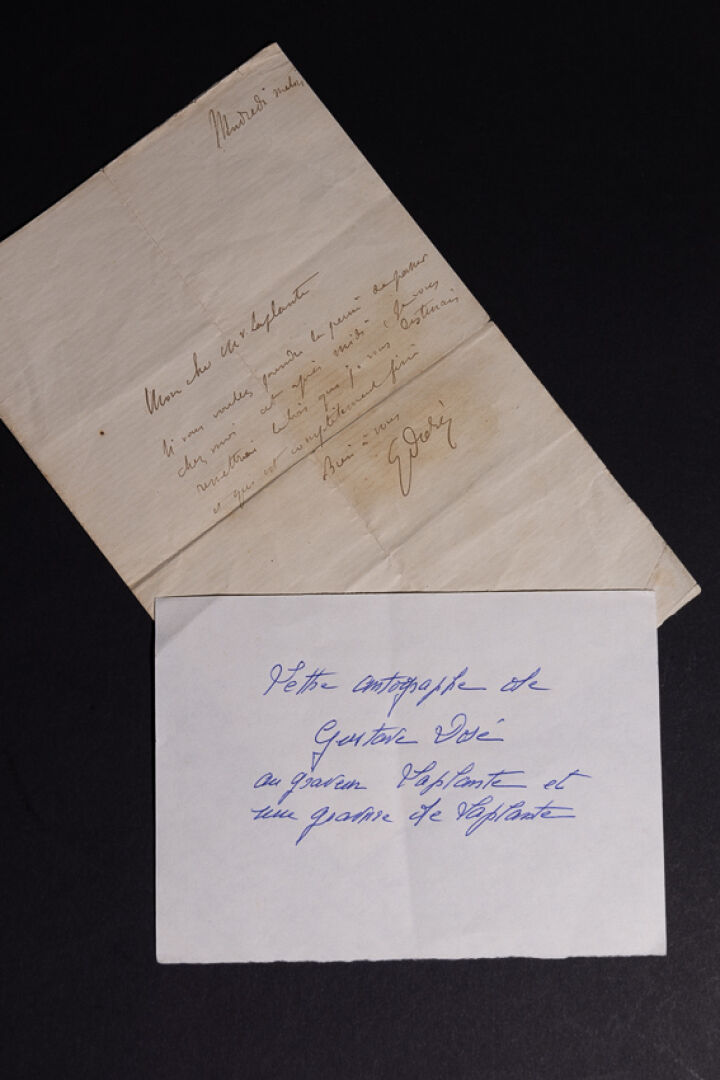 Vendredi matin
Mon cher Mr Laplante
Si vous voulez prendre la peine de passer
chez moi cet après midi je vous
remettrai le bois que je vous destinais
et qui est complètement fini
Bien à vous
G Doré
Lettre autographe de
Gustave Doré
au graveur Laplante et
une gravure de Laplante